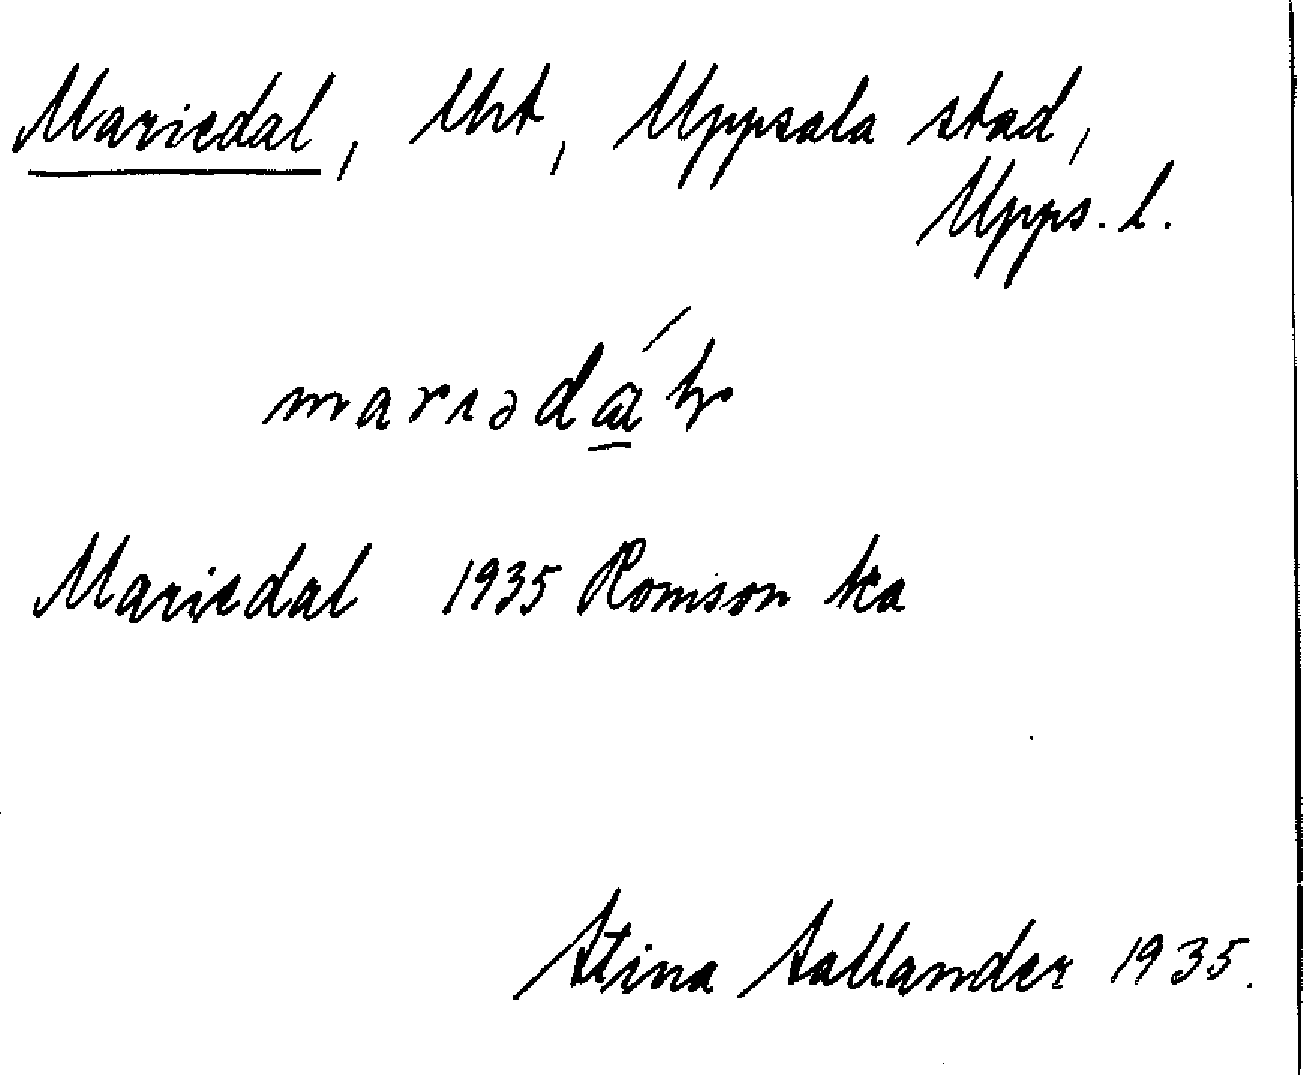 Mariedal, Uht, Uppsala stad,
Upps. l.
Mariedal 1935 Romson ka
Stina Sallander 1935.